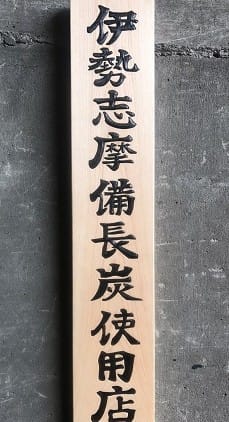 伊勢志摩備長炭使用店